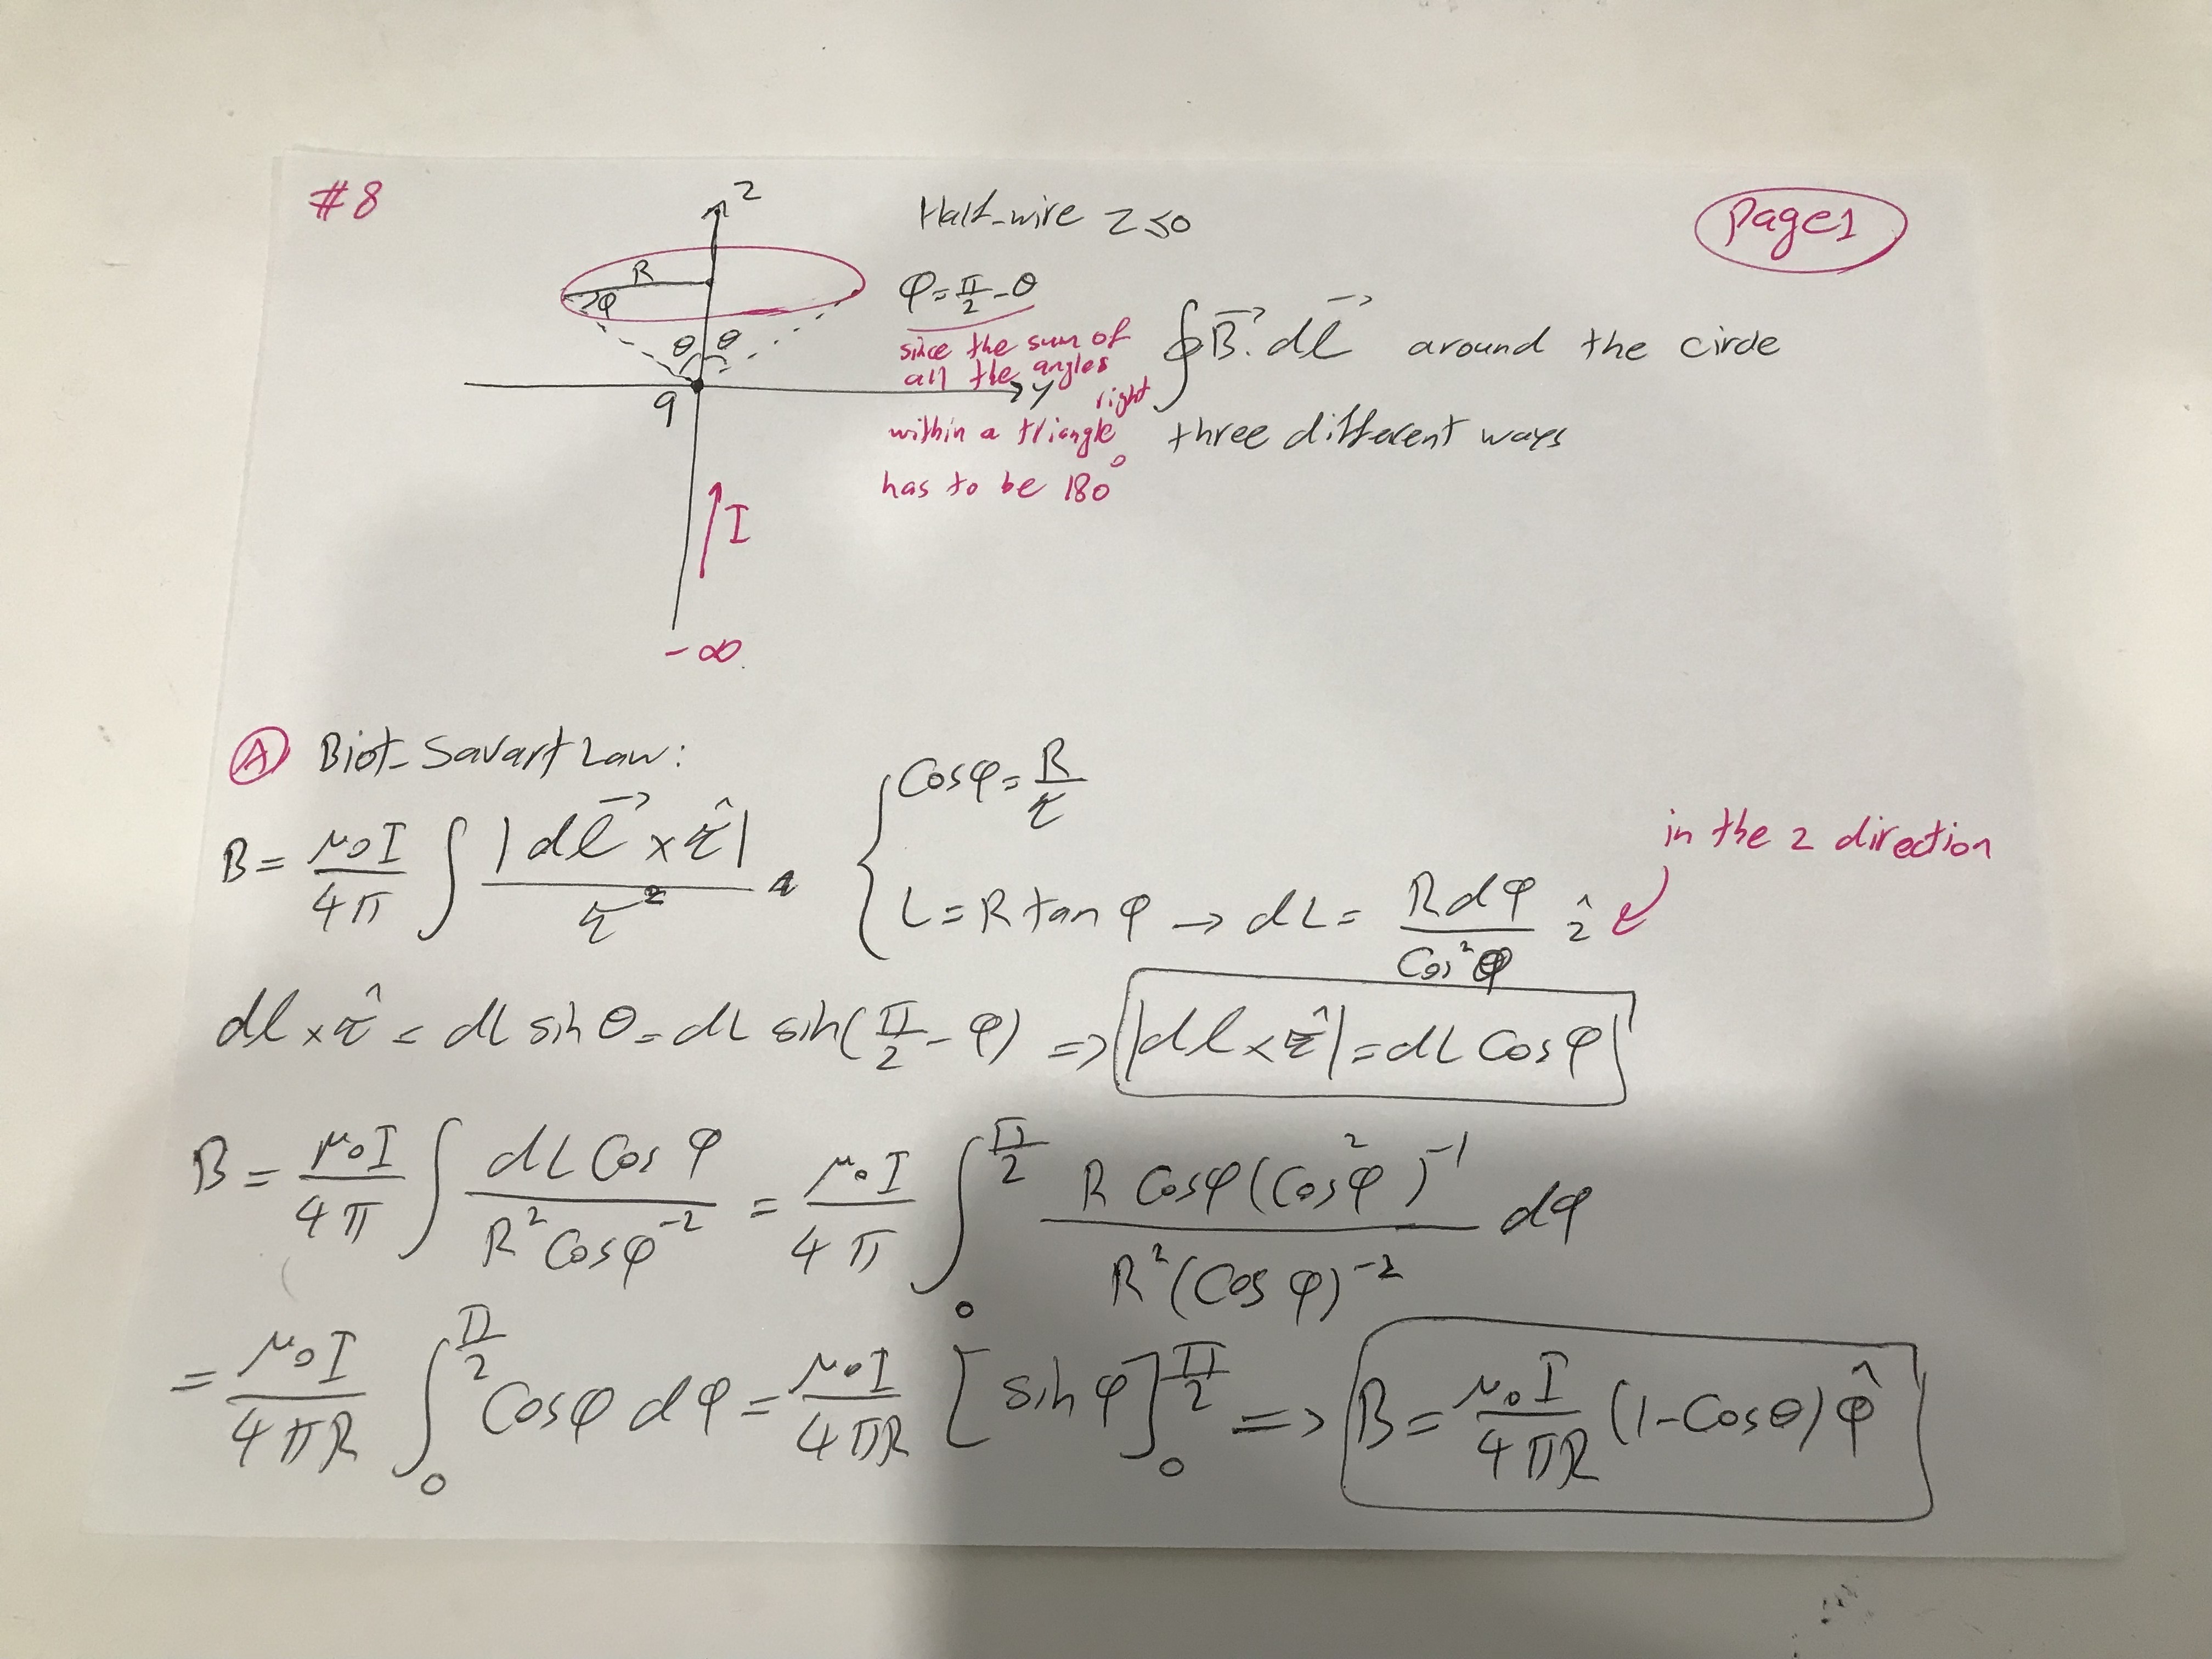 #8
Page 1
z
Half-wire z≤0
R
φ
φ = π/2 - θ
θ θ
since the sum of
all the angles
within a right triangle
has to be 180°
∮ B⃗ . dl⃗ around the circle
three different ways
y
q
I
-∞
Ⓐ Biot-Savart Law:
B = μ₀I/4π ∫ |dl⃗ × r̂| / r²
Cosφ = R/r
L = R tan φ → dL = R dφ / Cos²φ ẑ
in the z direction
dl × r̂ = dL sin θ = dL sin(π/2 - φ) => |dl × r̂| = dL Cos φ
B = μ₀I/4π ∫ dL Cos φ / R² Cosφ⁻² = μ₀I/4π ∫₀^π/2 R Cosφ (Cos²φ)⁻¹ / R² (Cos φ)⁻² dφ
= μ₀I/4πR ∫₀^π/2 Cosφ dφ = μ₀I/4πR [sin φ]₀^π/2 => B = μ₀I/4πR (1 - Cosθ) φ̂